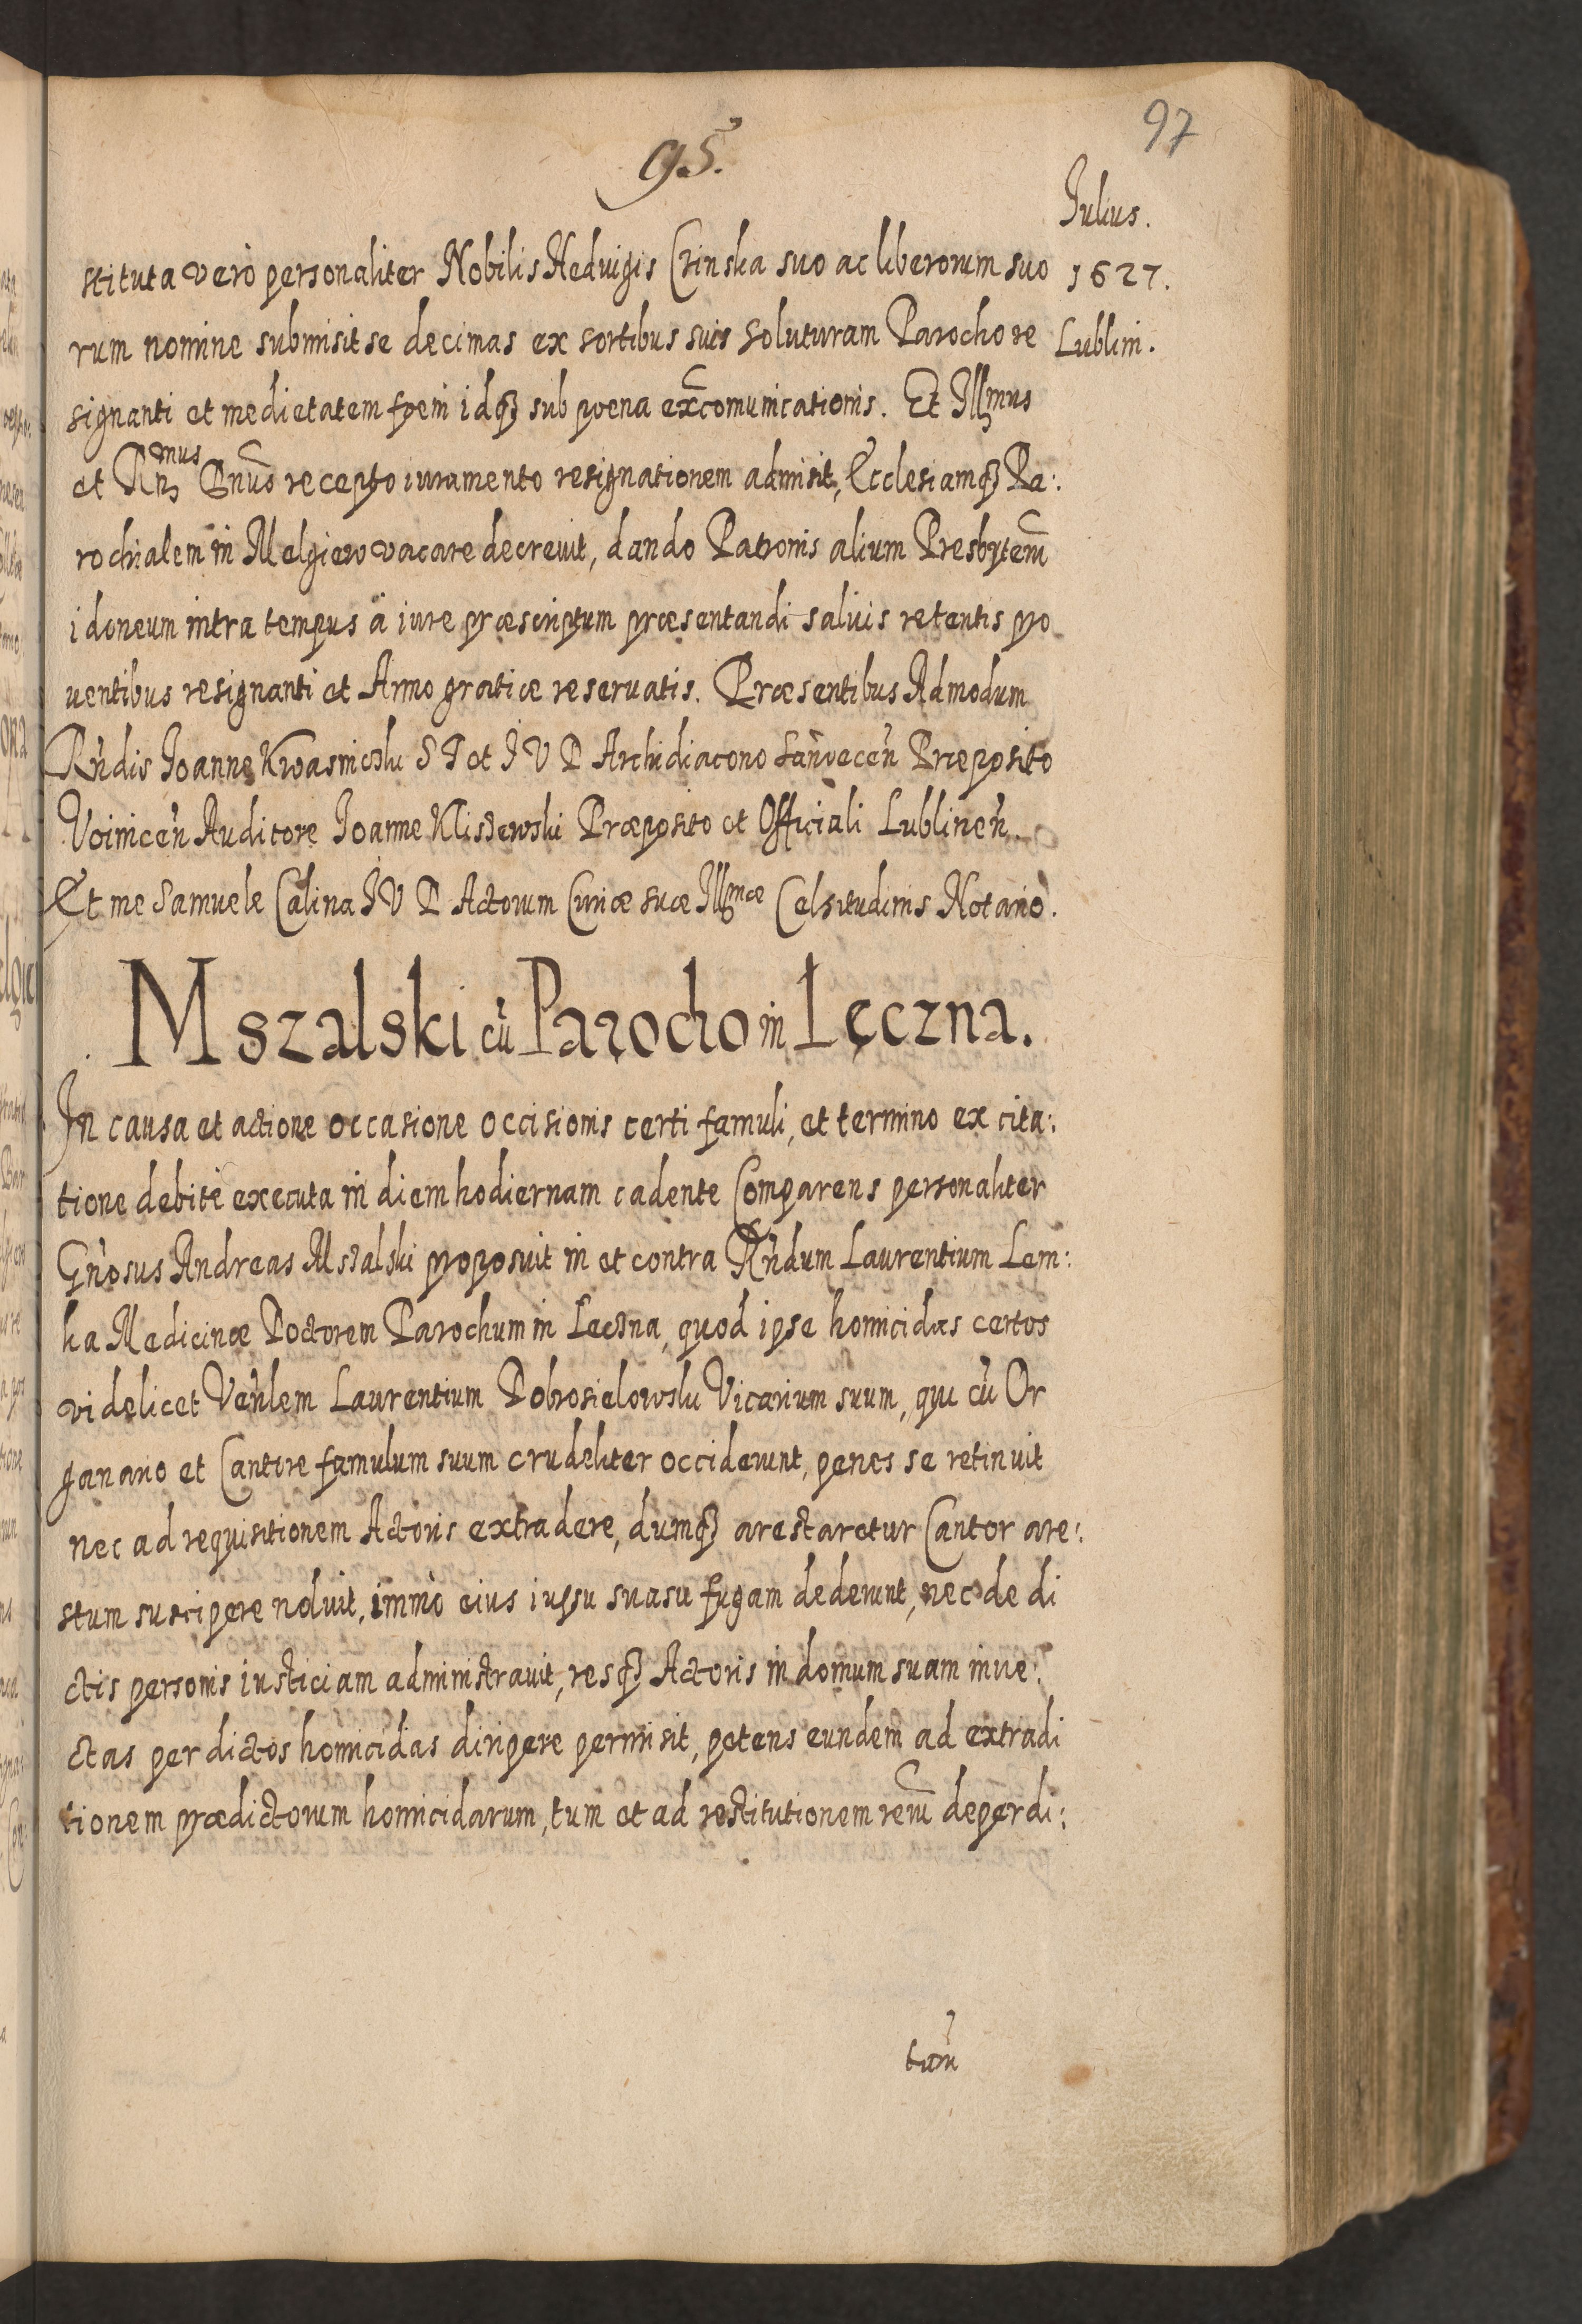 97
95.
Julius.
1627.
Lublini.
stituta verò personaliter Nobilis Hedvigis Crinska suo ac liberorum suo
rum nomine submisit se decimas ex sortibus suis soluturam Parocho re
signanti et medietatem fœni idq₃ sub pœna excōmunicationis. Et Illmus
et Rñs mus Dñus recepto iuramento resignationem admisit, Ecclesiamq₃ Pa:
rochialem in Melgiew vacare decrevit, dando Patronis alium Presbyterū
idoneum intra tempus à iure præscriptum præsentandi salvis retentis pro
ventibus resignanti et Anno gratiæ reservatis. Præsentibus Admodum
Rńdis Joanne Kwasnicski S T et J V D Archidiacono Sandeceń Præposito
Voiniceń Auditore Joanne Kliszewski Præposito et Officiali Lublineń.
Et me Samuele Calina J V D Actorum Curiæ suæ Illmæ Celsitudinis Notario.
Mszalski cū Parocho in Lęczna.
In causa et actione occasione occisionis certi famuli, et termino ex cita:
tione debitè executa in diem hodiernam cadente Comparens personaliter
Gńosus Andreas Mszalski proposuit in et contra Rńdum Laurentium Lem:
ka Medicinæ Doctorem Parochum in Leczna, quod ipse homicidas certos
videlicet Veńlem Laurentium Dobrosielowski Vicarium suum, qui cū Or
ganario et Cantore famulum suum crudeliter occiderunt, penes se retinuit
nec ad requisitionem Actoris extradere, dumq₃ arestaretur Cantor are:
stum suscipere noluit, immò eius iussu suasu fugam dederunt, nec de di
ctis personis iusticiam administravit, resq₃ Actoris in domum suam inve:
ctas per dictos homicidas diripere permisit, petens eundem ad extradi
tionem prædictorum homicidarum, tum et ad restitutionem rerū deperdi:
tarū